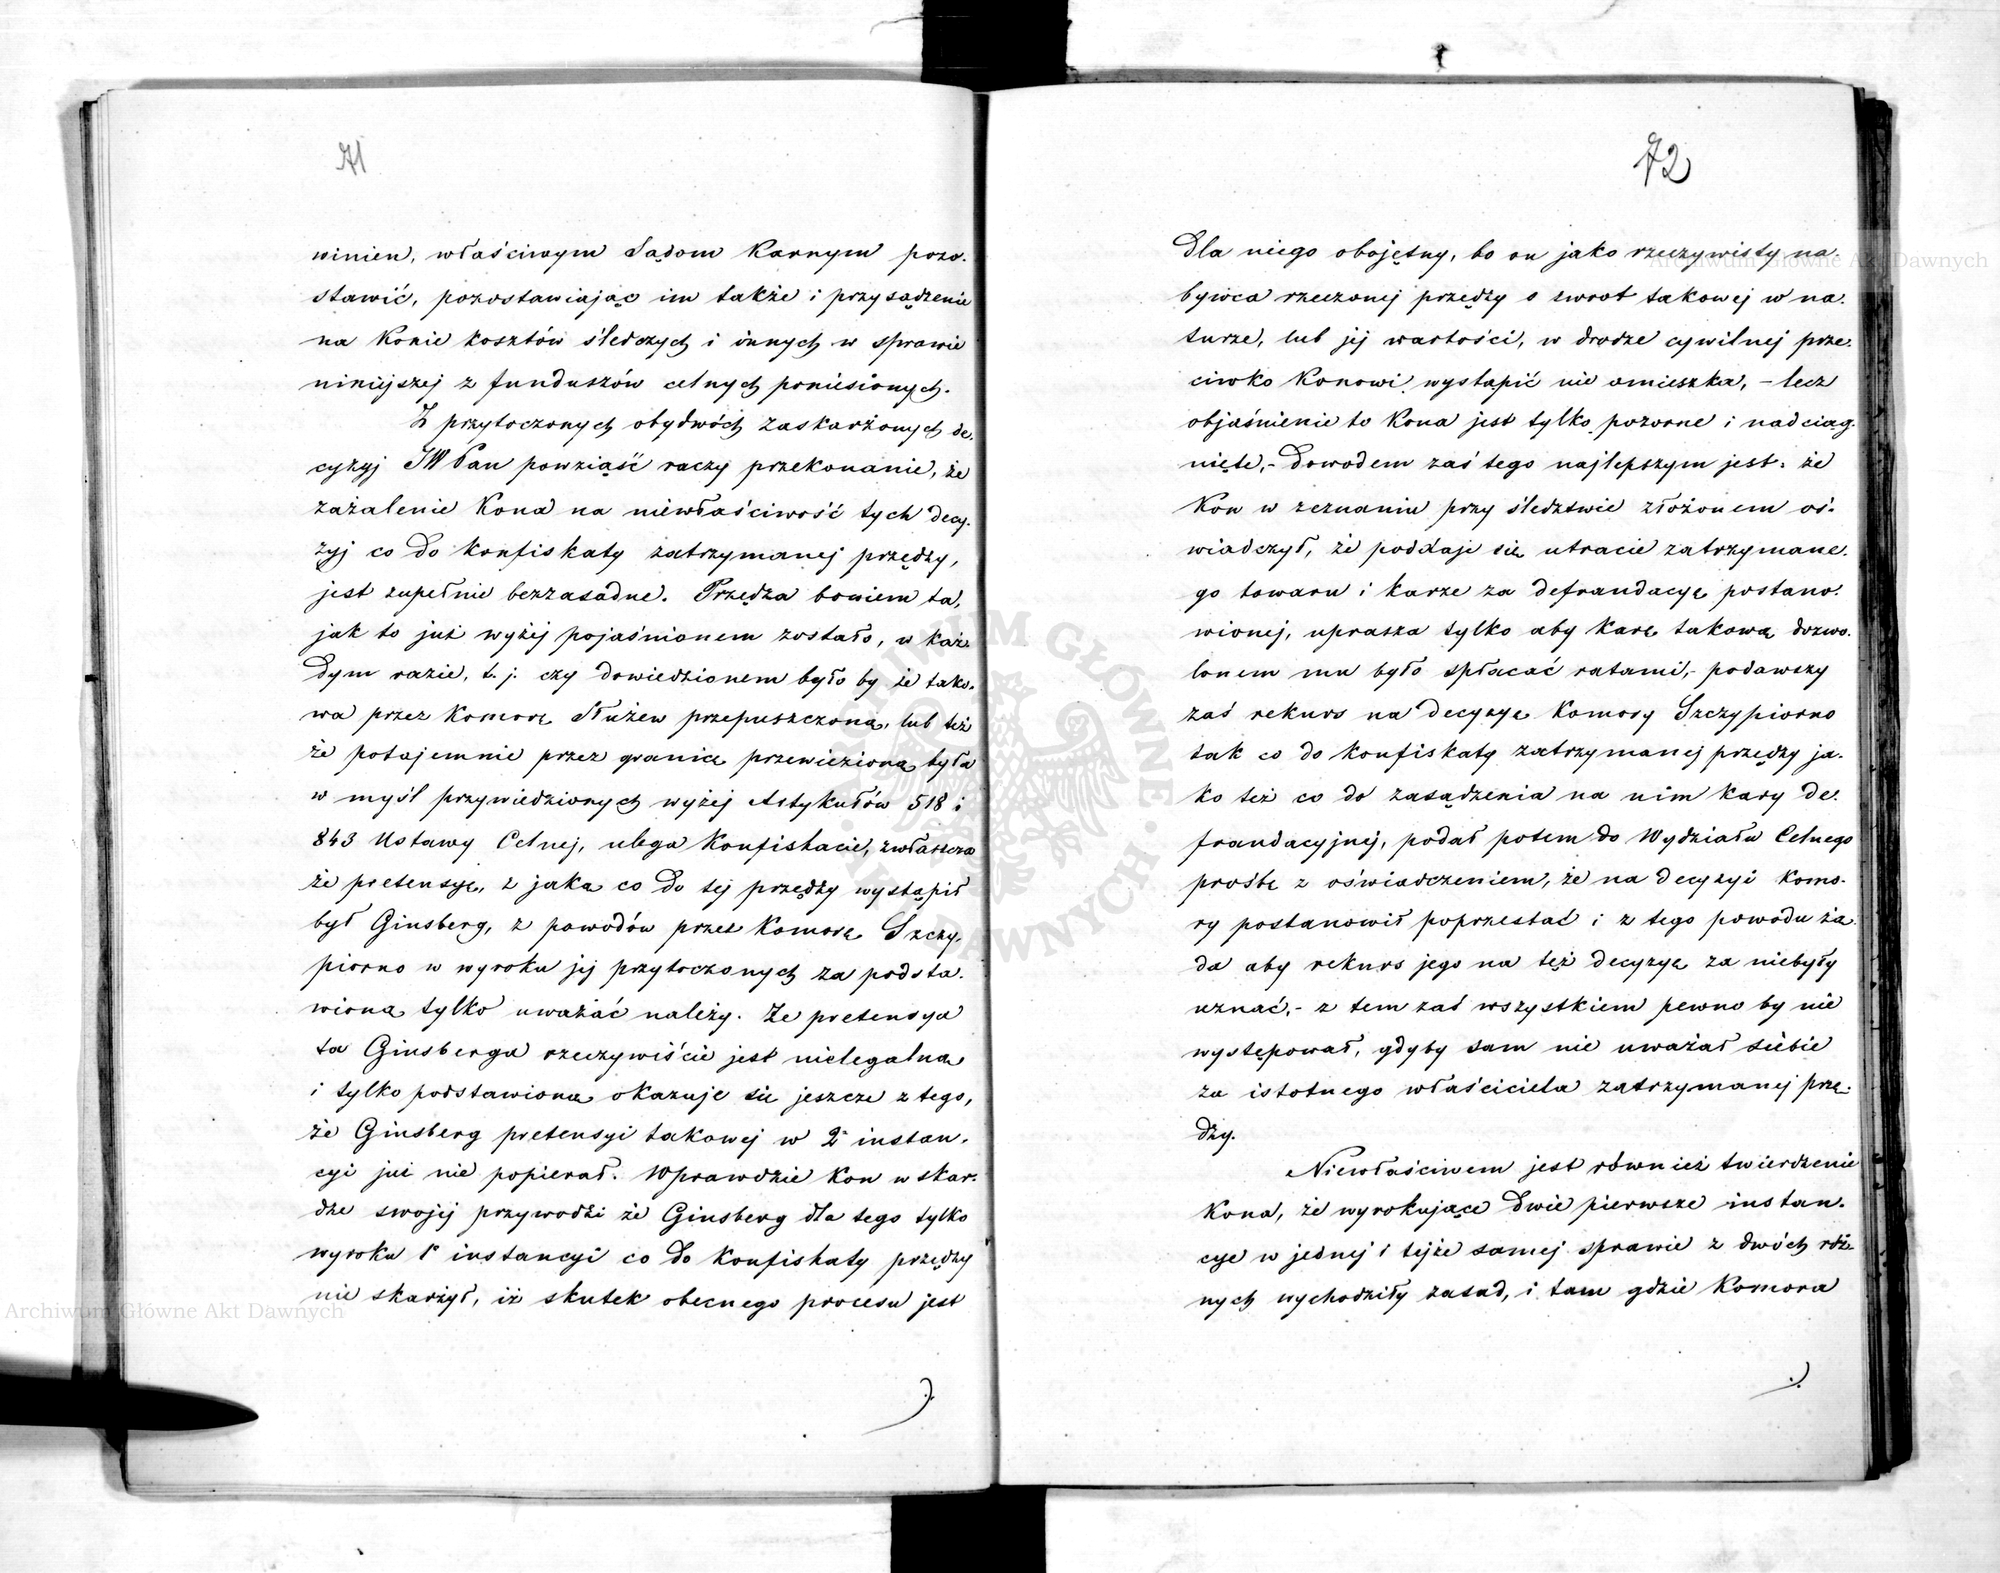 71
winien, właściwym Sądom Karnym pozo-
stawić, pozostawiając im także i przysądzenie
na Konie kosztów śledczych i innych w sprawie
niniejszej z funduszów celnych poniesionych.
Z przytoczonych obydwóch zaskarżonych de-
cyzyj JW Pan powziąść raczy przekonanie, że
zażalenie Kona na niewłaściwość tych decy-
zyj co do konfiskaty zatrzymanej przędzy,
jest zupełnie bezzasadne. Przędza bowiem ta,
jak to już wyżej pojaśnionem zostało, w każ-
dym razie, t. j. czy dowiedzionem było by że tako-
wa przez Komorę Służew przepuszczoną, lub też
że potajemnie przez granicę przewiezioną była
w myśl przywiedzionych wyżej Artykułów 518 i
843 Ustawy Celnej, ulega Konfiskacie, zwłaszcza
że pretensyę, z jaką co do tej przędzy wystąpił
był Ginsberg, z powodów przez Komorę Szczy-
piorno w wyroku jej przytoczonych za podsta-
wioną tylko uważać należy. Że pretensya
ta Ginsberga rzeczywiście jest nielegalną
i tylko podstawioną okazuje się jeszcze z tego,
że Ginsberg pretensyi takowej w 2ej instan-
cyi już nie popierał. Wprawdzie Kon w skar-
dze swojej przywodzi że Ginsberg dla tego tylko
wyroku 1ej instancyi co do konfiskaty przędzy
nie skarżył, iż skutek obecnego procesu jest
72
dla niego obojętny, bo on jako rzeczywisty na-
bywca rzeczonej przędzy o zwrot takowej w na-
turze, lub jej wartości, w drodze cywilnej prze-
ciwko Konowi wystąpić nie omieszka, – lecz
objaśnienie to Kona jest tylko pozorne i nadciąg-
nięte, – dowodem zaś tego najlepszym jest: że
Kon w zeznaniu przy śledztwie złożonem oś-
wiadczył, że poddaje się utracie zatrzymane-
go towaru i karze za defraudacyę postano-
wionej, uprasza tylko aby karę takową dozwo-
lonem mu było spłacać ratami, – podawszy
zaś rekurs na decyzyę Komory Szczypiorno
tak co do konfiskaty zatrzymanej przędzy ja-
ko też co do zasądzenia na nim kary de-
fraudacyjnej, podał potem do Wydziału Celnego
prośbę z oświadczeniem, że na decyzyi Komo-
ry postanowił poprzestać i z tego powodu żą-
da aby rekurs jego na tęż decyzyę za niebyły
uznać, – z tem zaś wszystkiem pewno by nie
występował, gdyby sam nie uważał siebie
za istotnego właściciela zatrzymanej przę-
dzy.
Niewłaściwem jest również twierdzenie
Kona, że wyrokujące dwie pierwsze instan-
cye w jednej i tejże samej sprawie z dwóch róż-
nych wychodziły zasad, i tam gdzie Komora
Archiwum Główne Akt Dawnych
Archiwum Główne Akt Dawnych